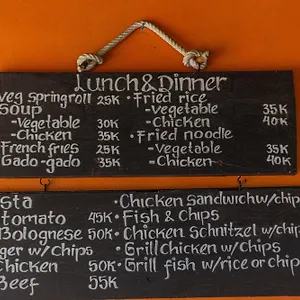 Lunch & Dinner
veg springroll 25K · Fried rice
Soup -vegetable 35K
-Vegetable 30K -Chicken 40K
-Chicken 35K · Fried noodle
French fries 25K -Vegetable 35K
Gado-gado 35K -Chicken 40K
sta · Chicken sandwich w/chi
tomato 45K · Fish & Chips
Bolognese 50K · Chicken Schnitzel w/chi
ger w/chips · Grill Chicken w/chips
Chicken 50K · Grill fish w/rice or chip
Beef 55K